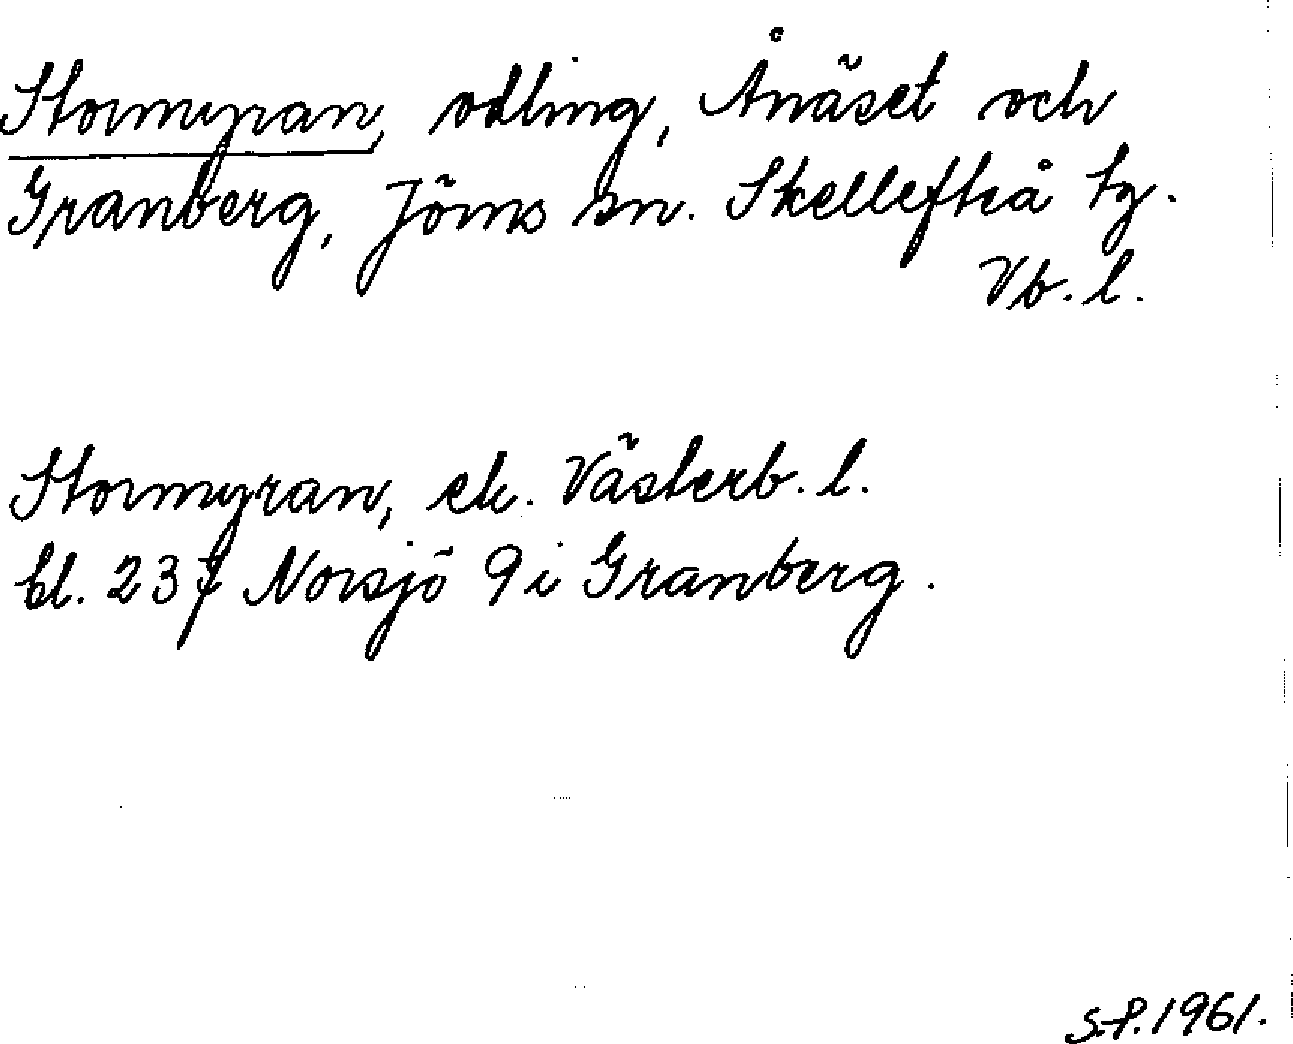 Stormyran, odling, Ånäset och
Granberg, Jörns sn. Skellefteå tg.
Vb. l.
Stormyran, ek. Västerb. l.
bl. 237 Norsjö 9 i Granberg.
S.P. 1961.